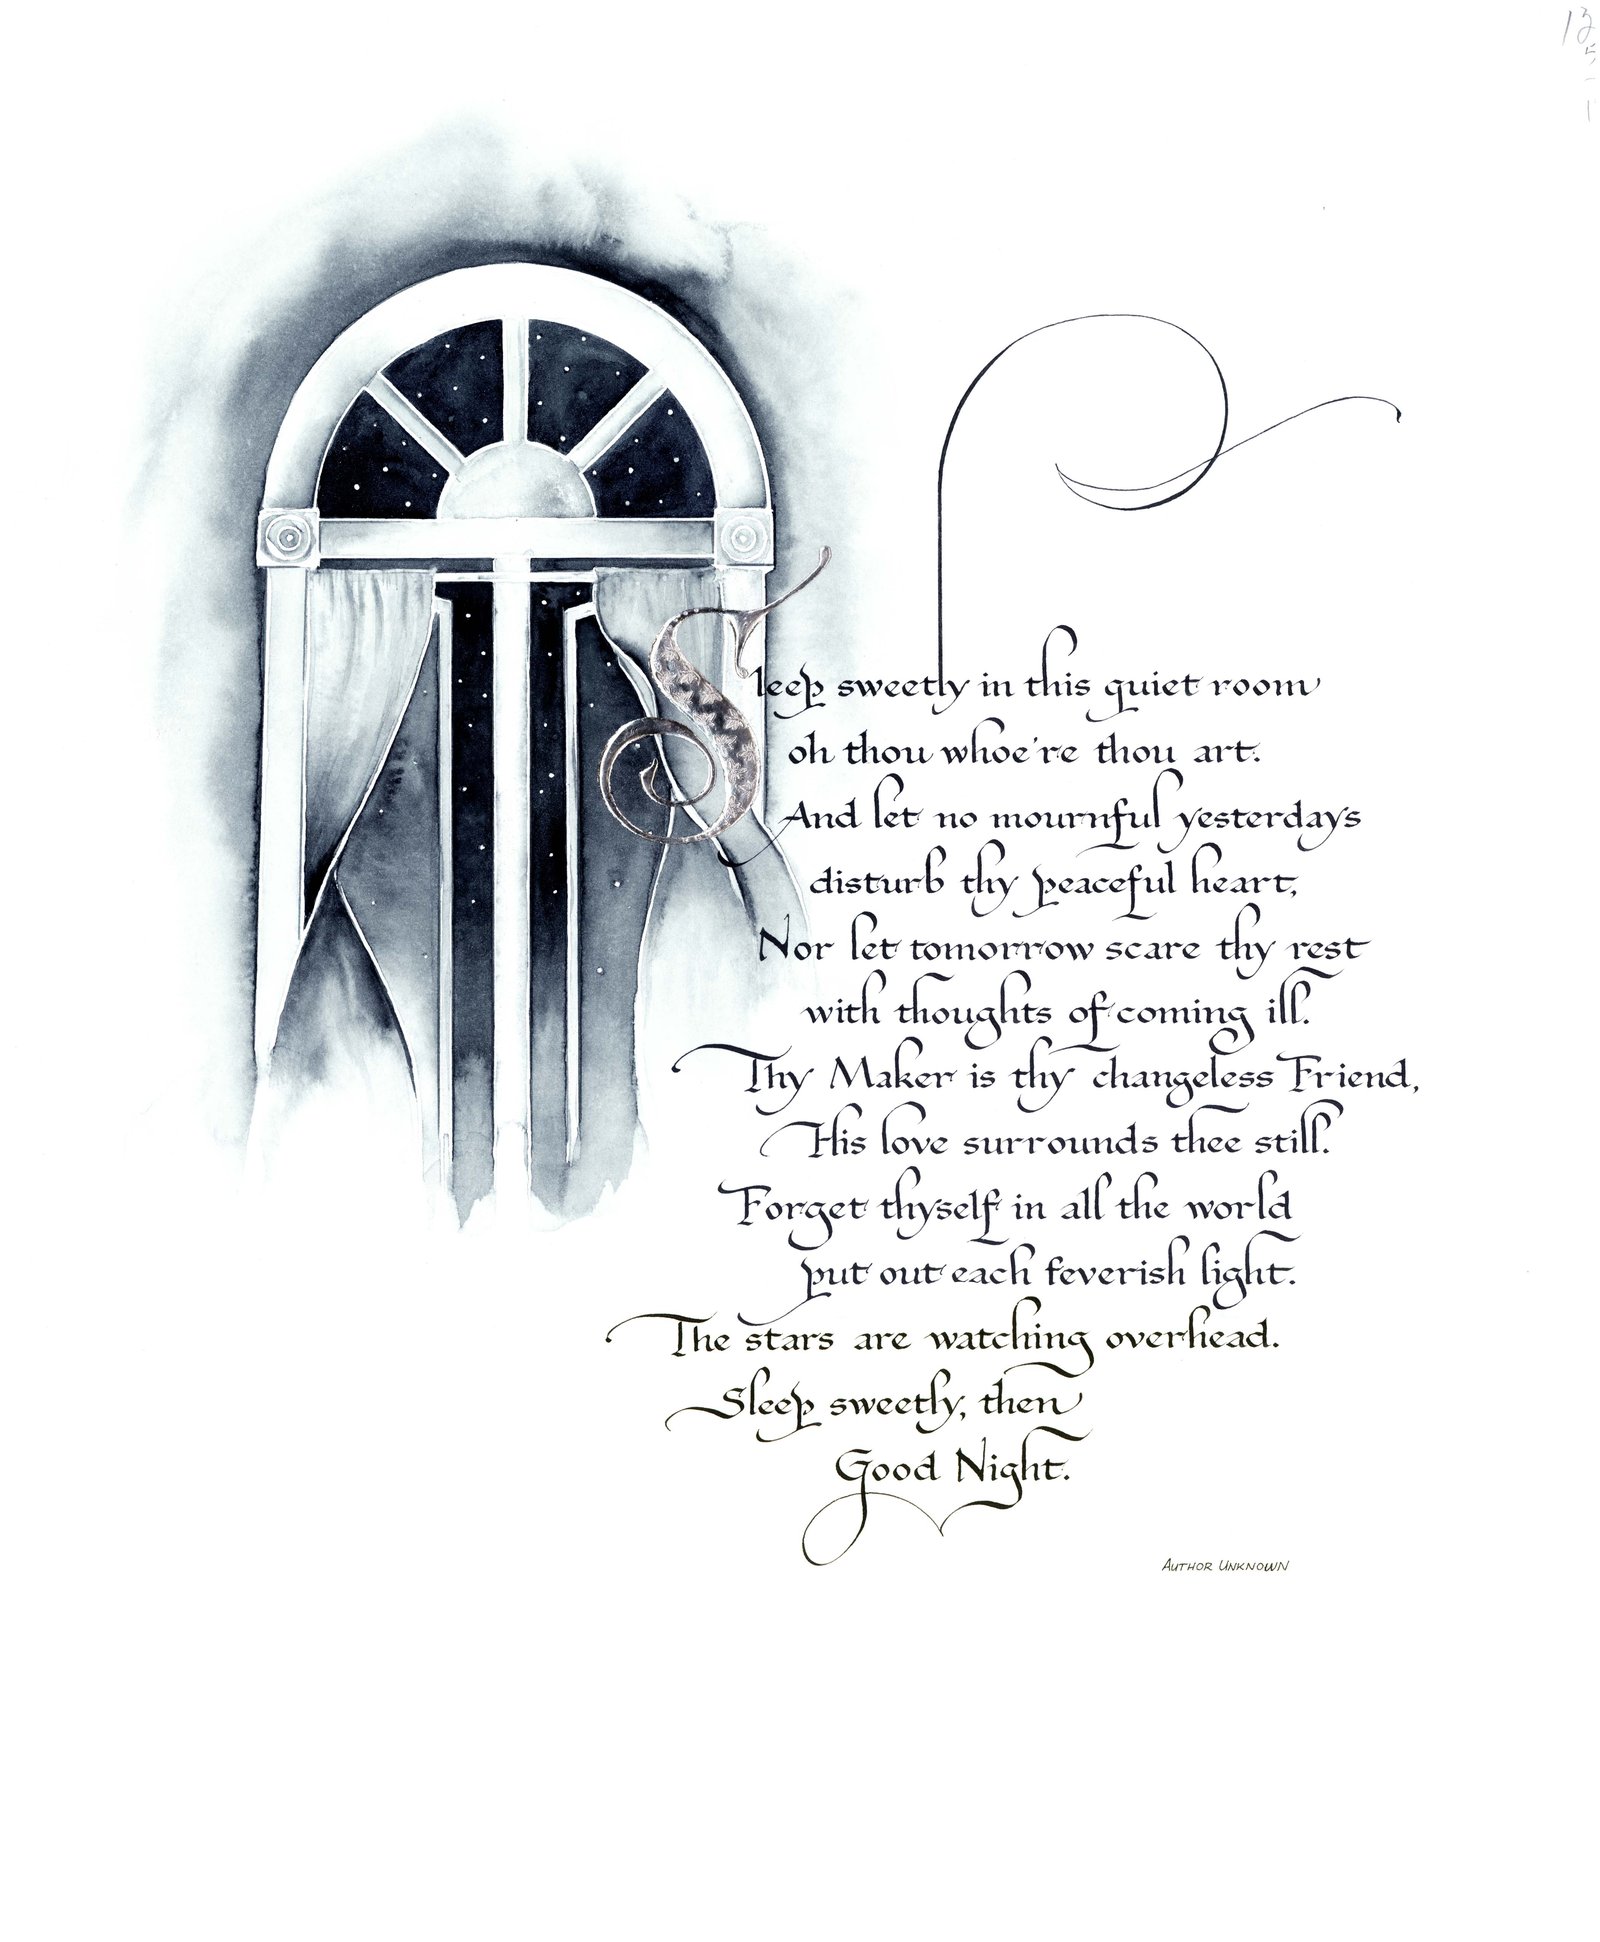 Sleep sweetly in this quiet room
oh thou whoe're thou art.
And let no mournful yesterdays
disturb thy peaceful heart,
Nor let tomorrow scare thy rest
with thoughts of coming ill.
Thy Maker is thy changeless Friend,
His love surrounds thee still.
Forget thyself in all the world
put out each feverish light.
The stars are watching overhead.
Sleep sweetly, then
Good Night.
AUTHOR UNKNOWN